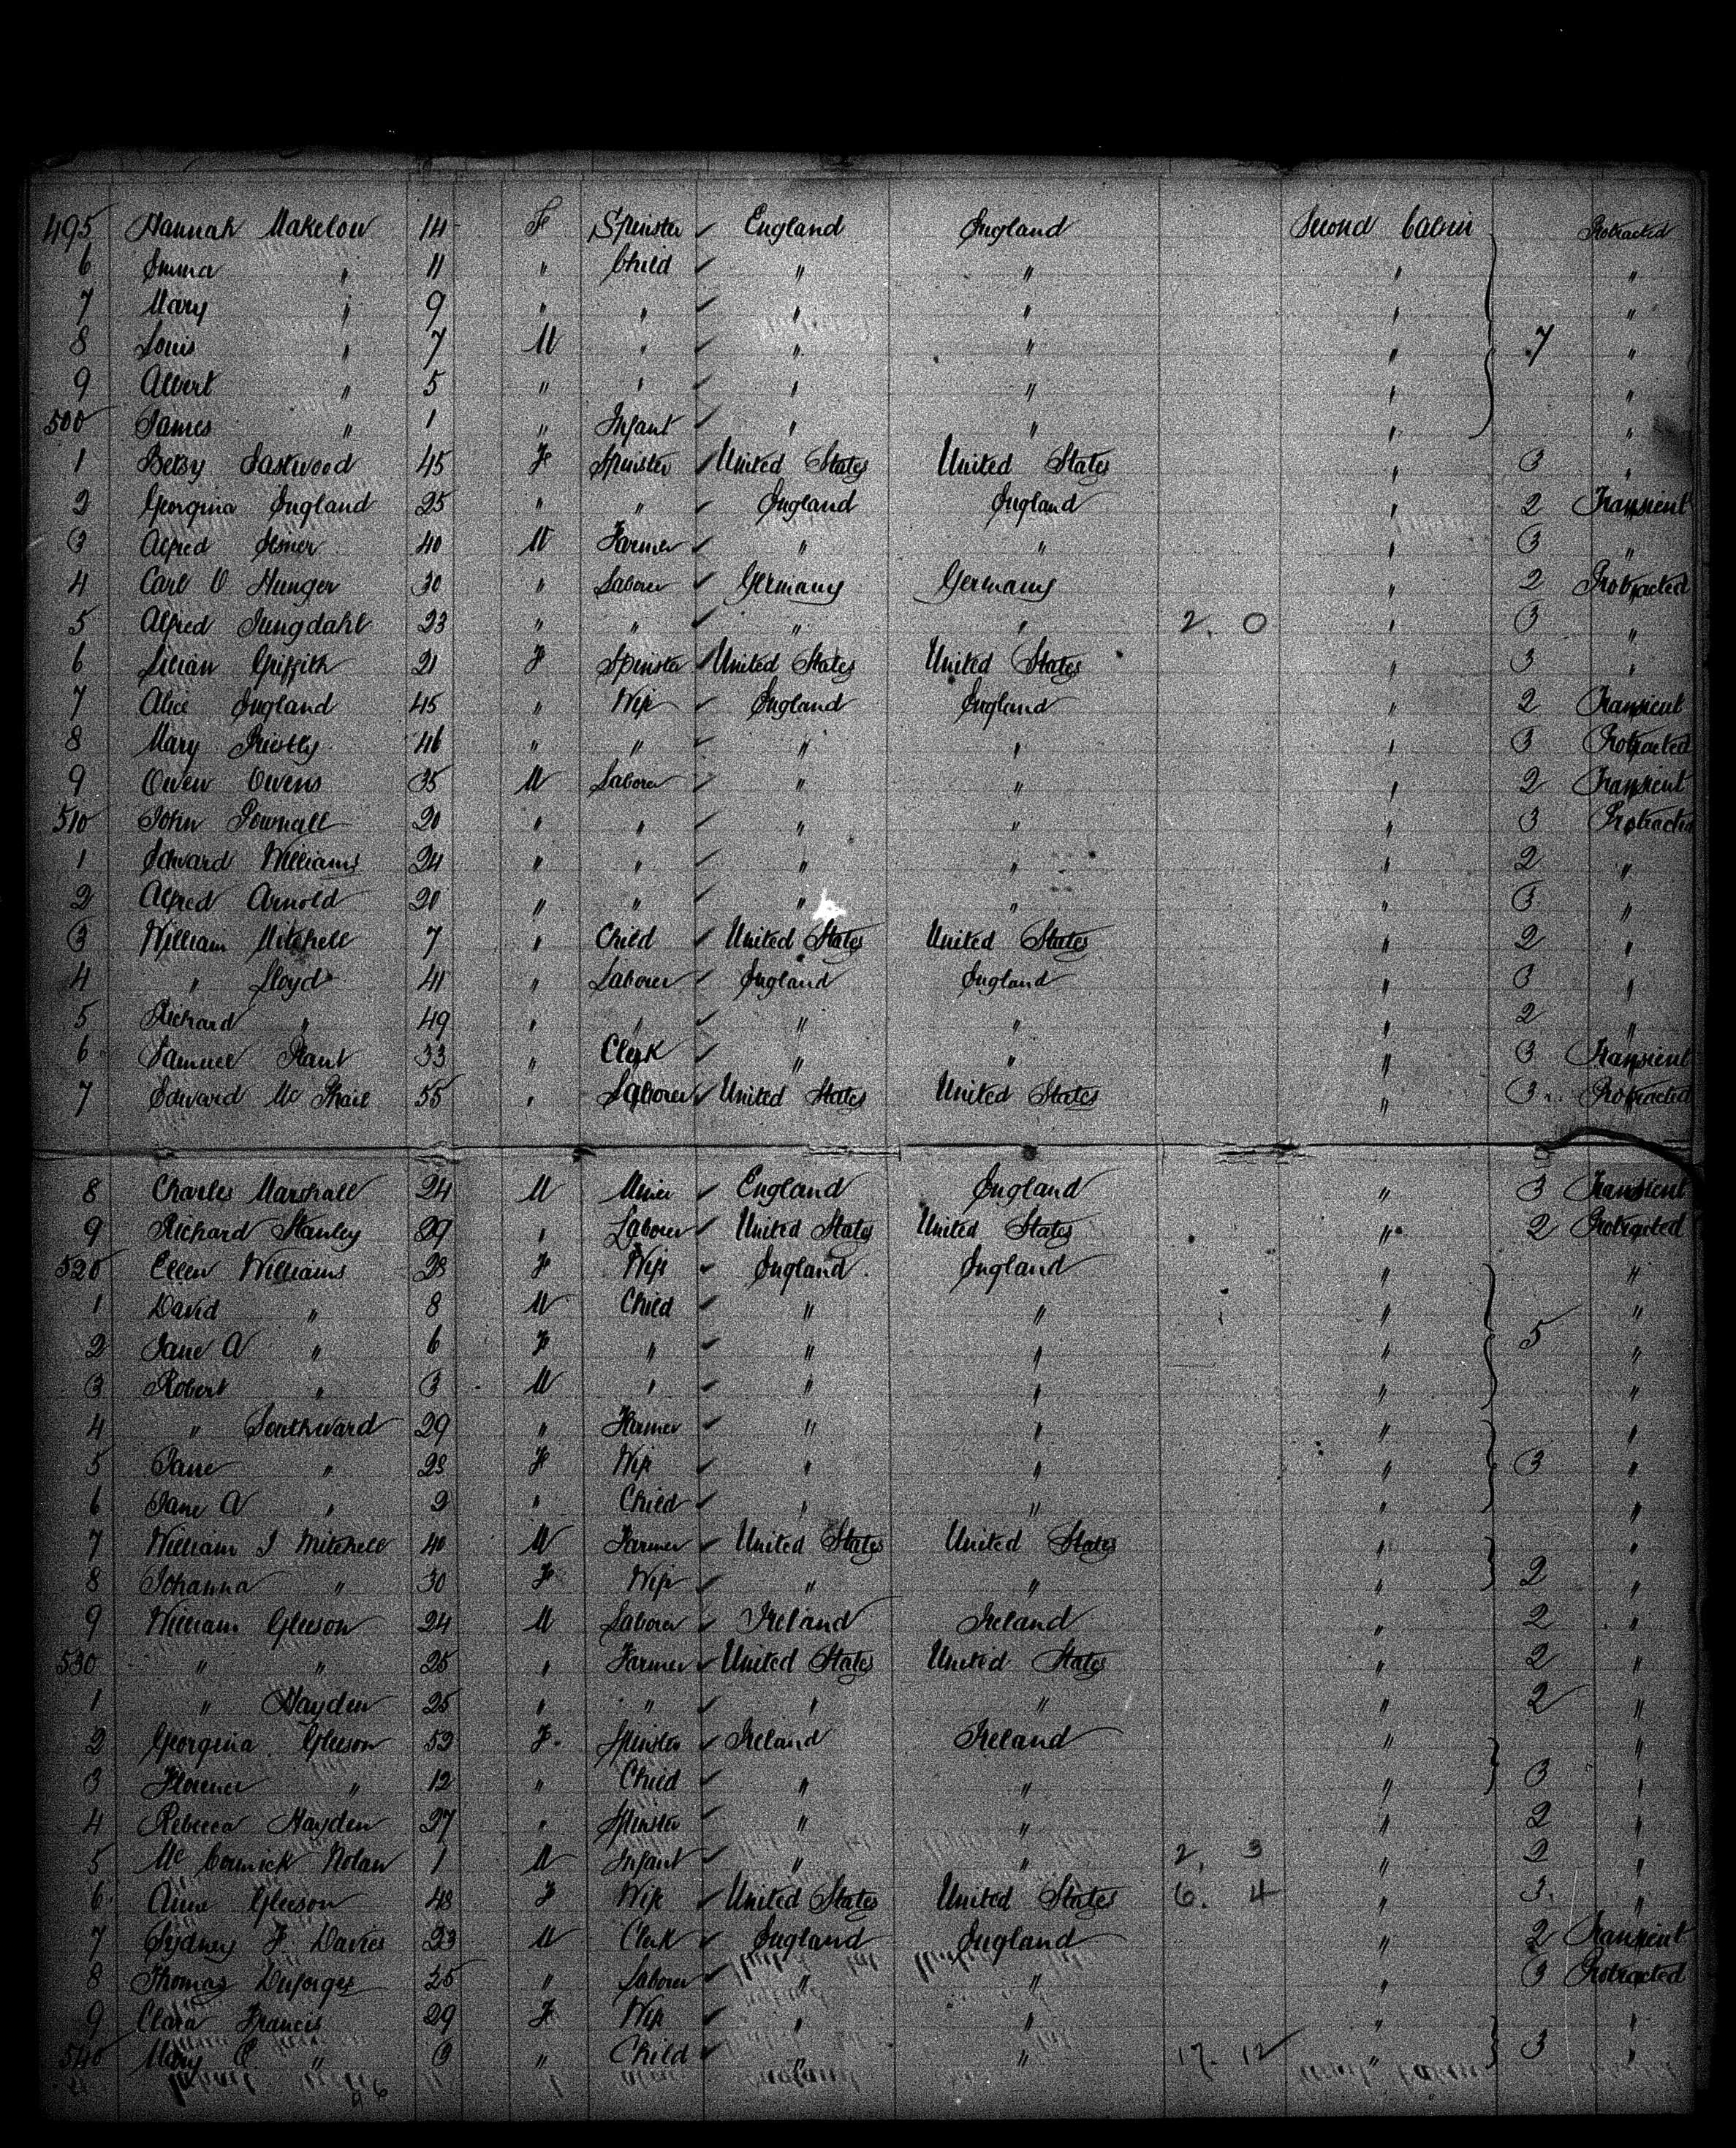 495 Hannah Makelow 14 F Spinster ✓ England England Second Cabin Protracted
6 Emma " 11 " Child ✓ " " " "
7 Mary " 9 " " ✓ " " " "
8 Louis " 7 M " ✓ " " " 7 "
9 Albert " 5 " " ✓ " " " "
500 James " 1 " Infant ✓ " " " "
1 Betsy Eastwood 45 F Spinster ✓ United States United States " 3 "
2 Georgina England 25 " " ✓ England England " 2 Transient
3 Alfred 40 M Farmer ✓ " " " 3 "
4 Carl O Hunger 30 " Laborer ✓ Germany Germany " 2 Protracted
5 Alfred Jungdahl 23 " " ✓ " " 2. 0 " 3 "
6 Lilian Griffith 21 F Spinster ✓ United States United States " 3 "
7 Alice England 45 " Wife ✓ England England " 2 Transient
8 Mary Priestly 46 " " ✓ " " " 3 Protracted
9 Owen Owens 35 M Laborer ✓ " " " 2 Transient
510 John Pownall 20 " " ✓ " " " 3 Protracted
1 Edward Williams 24 " " ✓ " " " 2 "
2 Alfred Arnold 20 " " ✓ " " " 3 "
3 William Mitchell 7 " Child ✓ United States United States " 2 "
4 " Lloyd 41 " Laborer ✓ England England " 3 "
5 Richard " 49 " " ✓ " " " 2 "
6 Samuel Plant 33 " Clerk ✓ " " " 3 Transient
7 Edward Mc Phail 55 " Laborer ✓ United States United States " 3 Protracted
8 Charles Marshall 24 M Miner ✓ England England " 3 Transient
9 Richard Stanley 29 " Laborer ✓ United States United States " 2 Protracted
520 Ellen Williams 28 F Wife ✓ England England " "
1 David " 8 M Child ✓ " " " "
2 Jane A " 6 F " ✓ " " " 5 "
3 Robert " 3 M " ✓ " " " "
4 " Southward 29 " Farmer ✓ " " " "
5 Jane " 28 F Wife ✓ " " " 3 "
6 Jane A " 2 " Child ✓ " " " "
7 William J Mitchell 40 M Farmer ✓ United States United States " "
8 Johanna " 30 F Wife ✓ " " " 2 "
9 William Gleeson 24 M Laborer ✓ Ireland Ireland " 2 "
530 " " 25 " Farmer ✓ United States United States " 2 "
1 " Hayden 25 " " ✓ " " " 2 "
2 Georgina Gleeson 52 F Spinster ✓ Ireland Ireland " "
3 Florence " 12 " Child ✓ " " " 3 "
4 Rebecca Hayden 27 " Spinster " " " 2 "
5 Mc Cormick Nolan 1 M Infant ✓ " " 2, 3 " 2 "
6 Anne Gleeson 48 F Wife ✓ United States United States 6. 4 " 3. "
7 Sydney F Davies 23 M Clerk ✓ England England " 2 Transient
8 Thomas 25 " Laborer ✓ " " " 3 Protracted
9 Clara Francis 29 F Wife ✓ " " " "
540 Mary E " 3 " Child ✓ " " 17. 12 " 3 "